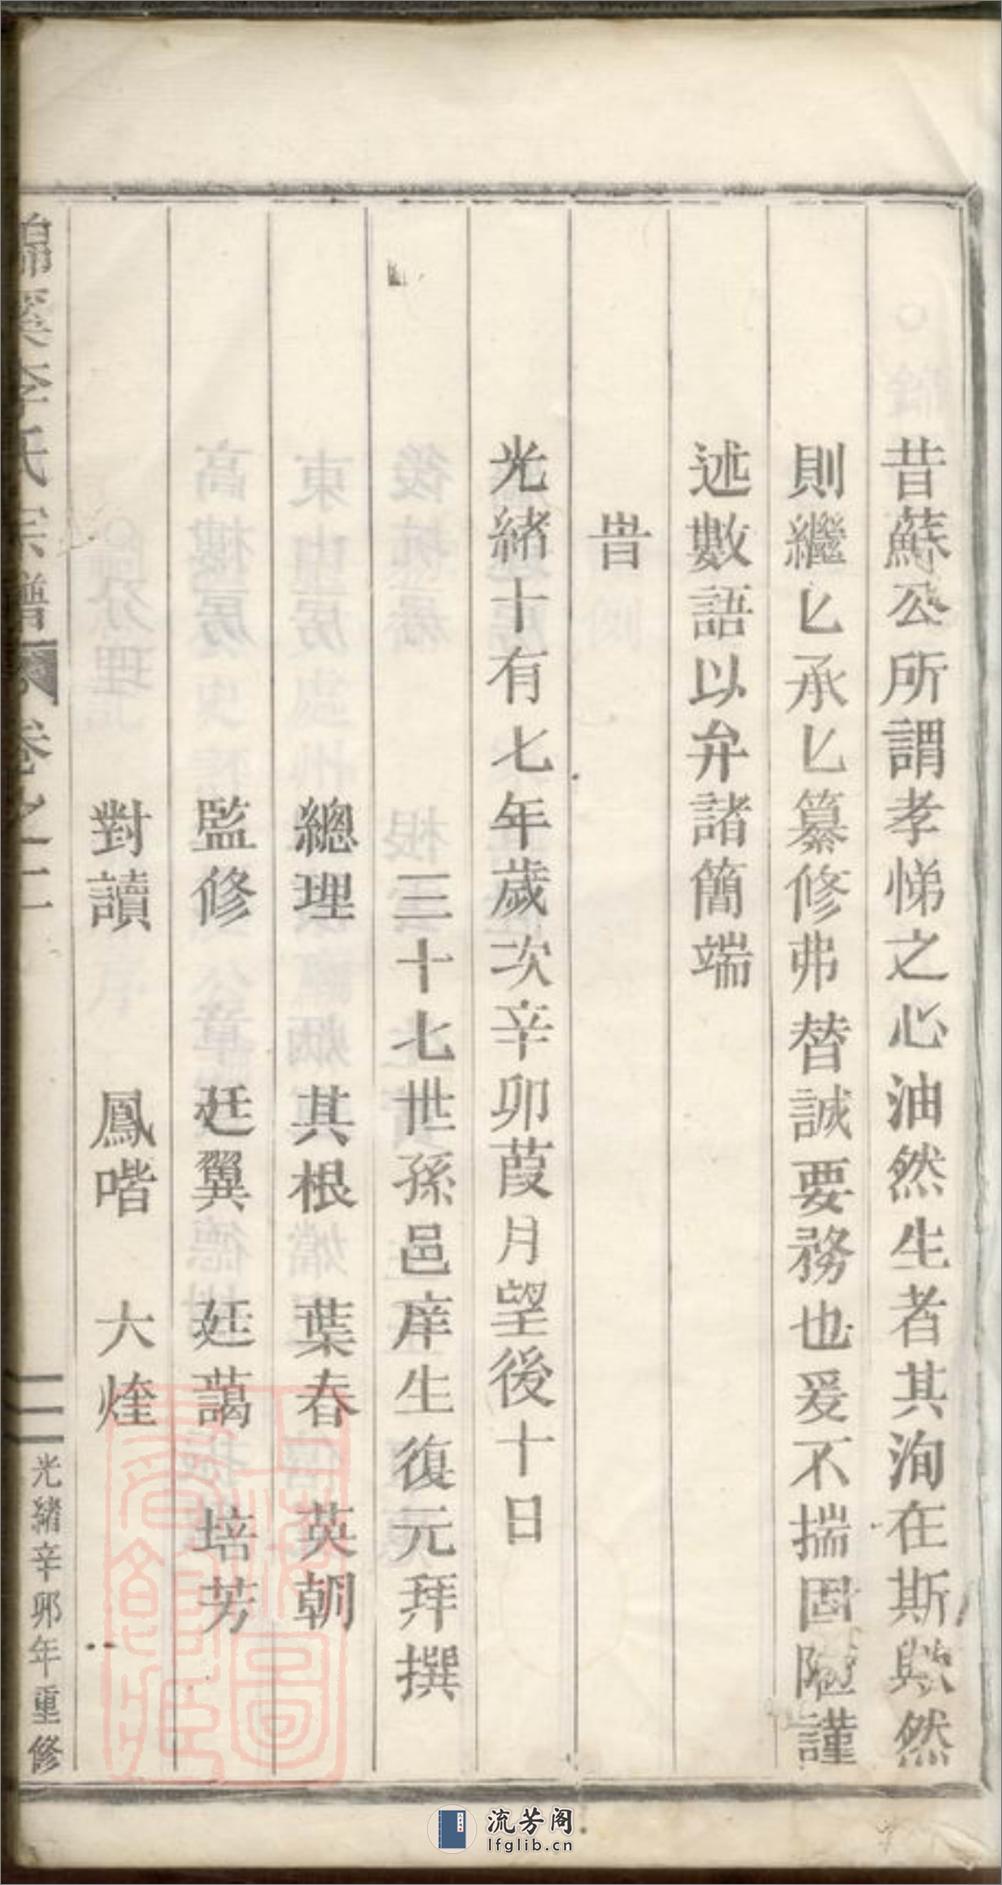 昔蘇公所謂孝悌之心油然生者其洵在斯歟然
則繼匕承匕纂修弗替誠要務也爰不揣固陋謹
述數語以弁諸簡端
旹
光緒十有七年歲次辛卯葭月望後十日
三十七世孫邑庠生復元拜撰
總理 其根 葉春 英朝
監修 廷翼 廷藹 培芳
對讀 鳳喈 大煃
錦溪李氏宗譜 卷之二
二 光緒辛卯年重修
流芳阁
lfglib.cn